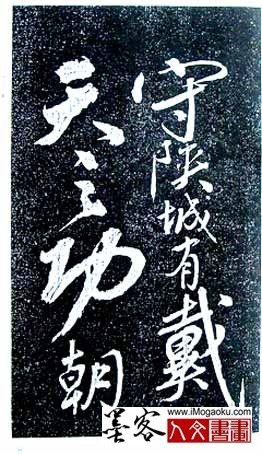 守陕城有戴
天之功朝
墨客
www.iMogaoku.com
人文書畫